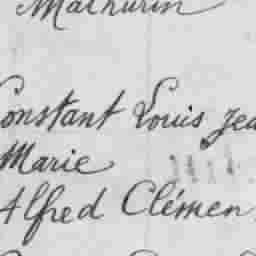 Mathurin
Constant Louis Jea
Marie
Alfred Clémen